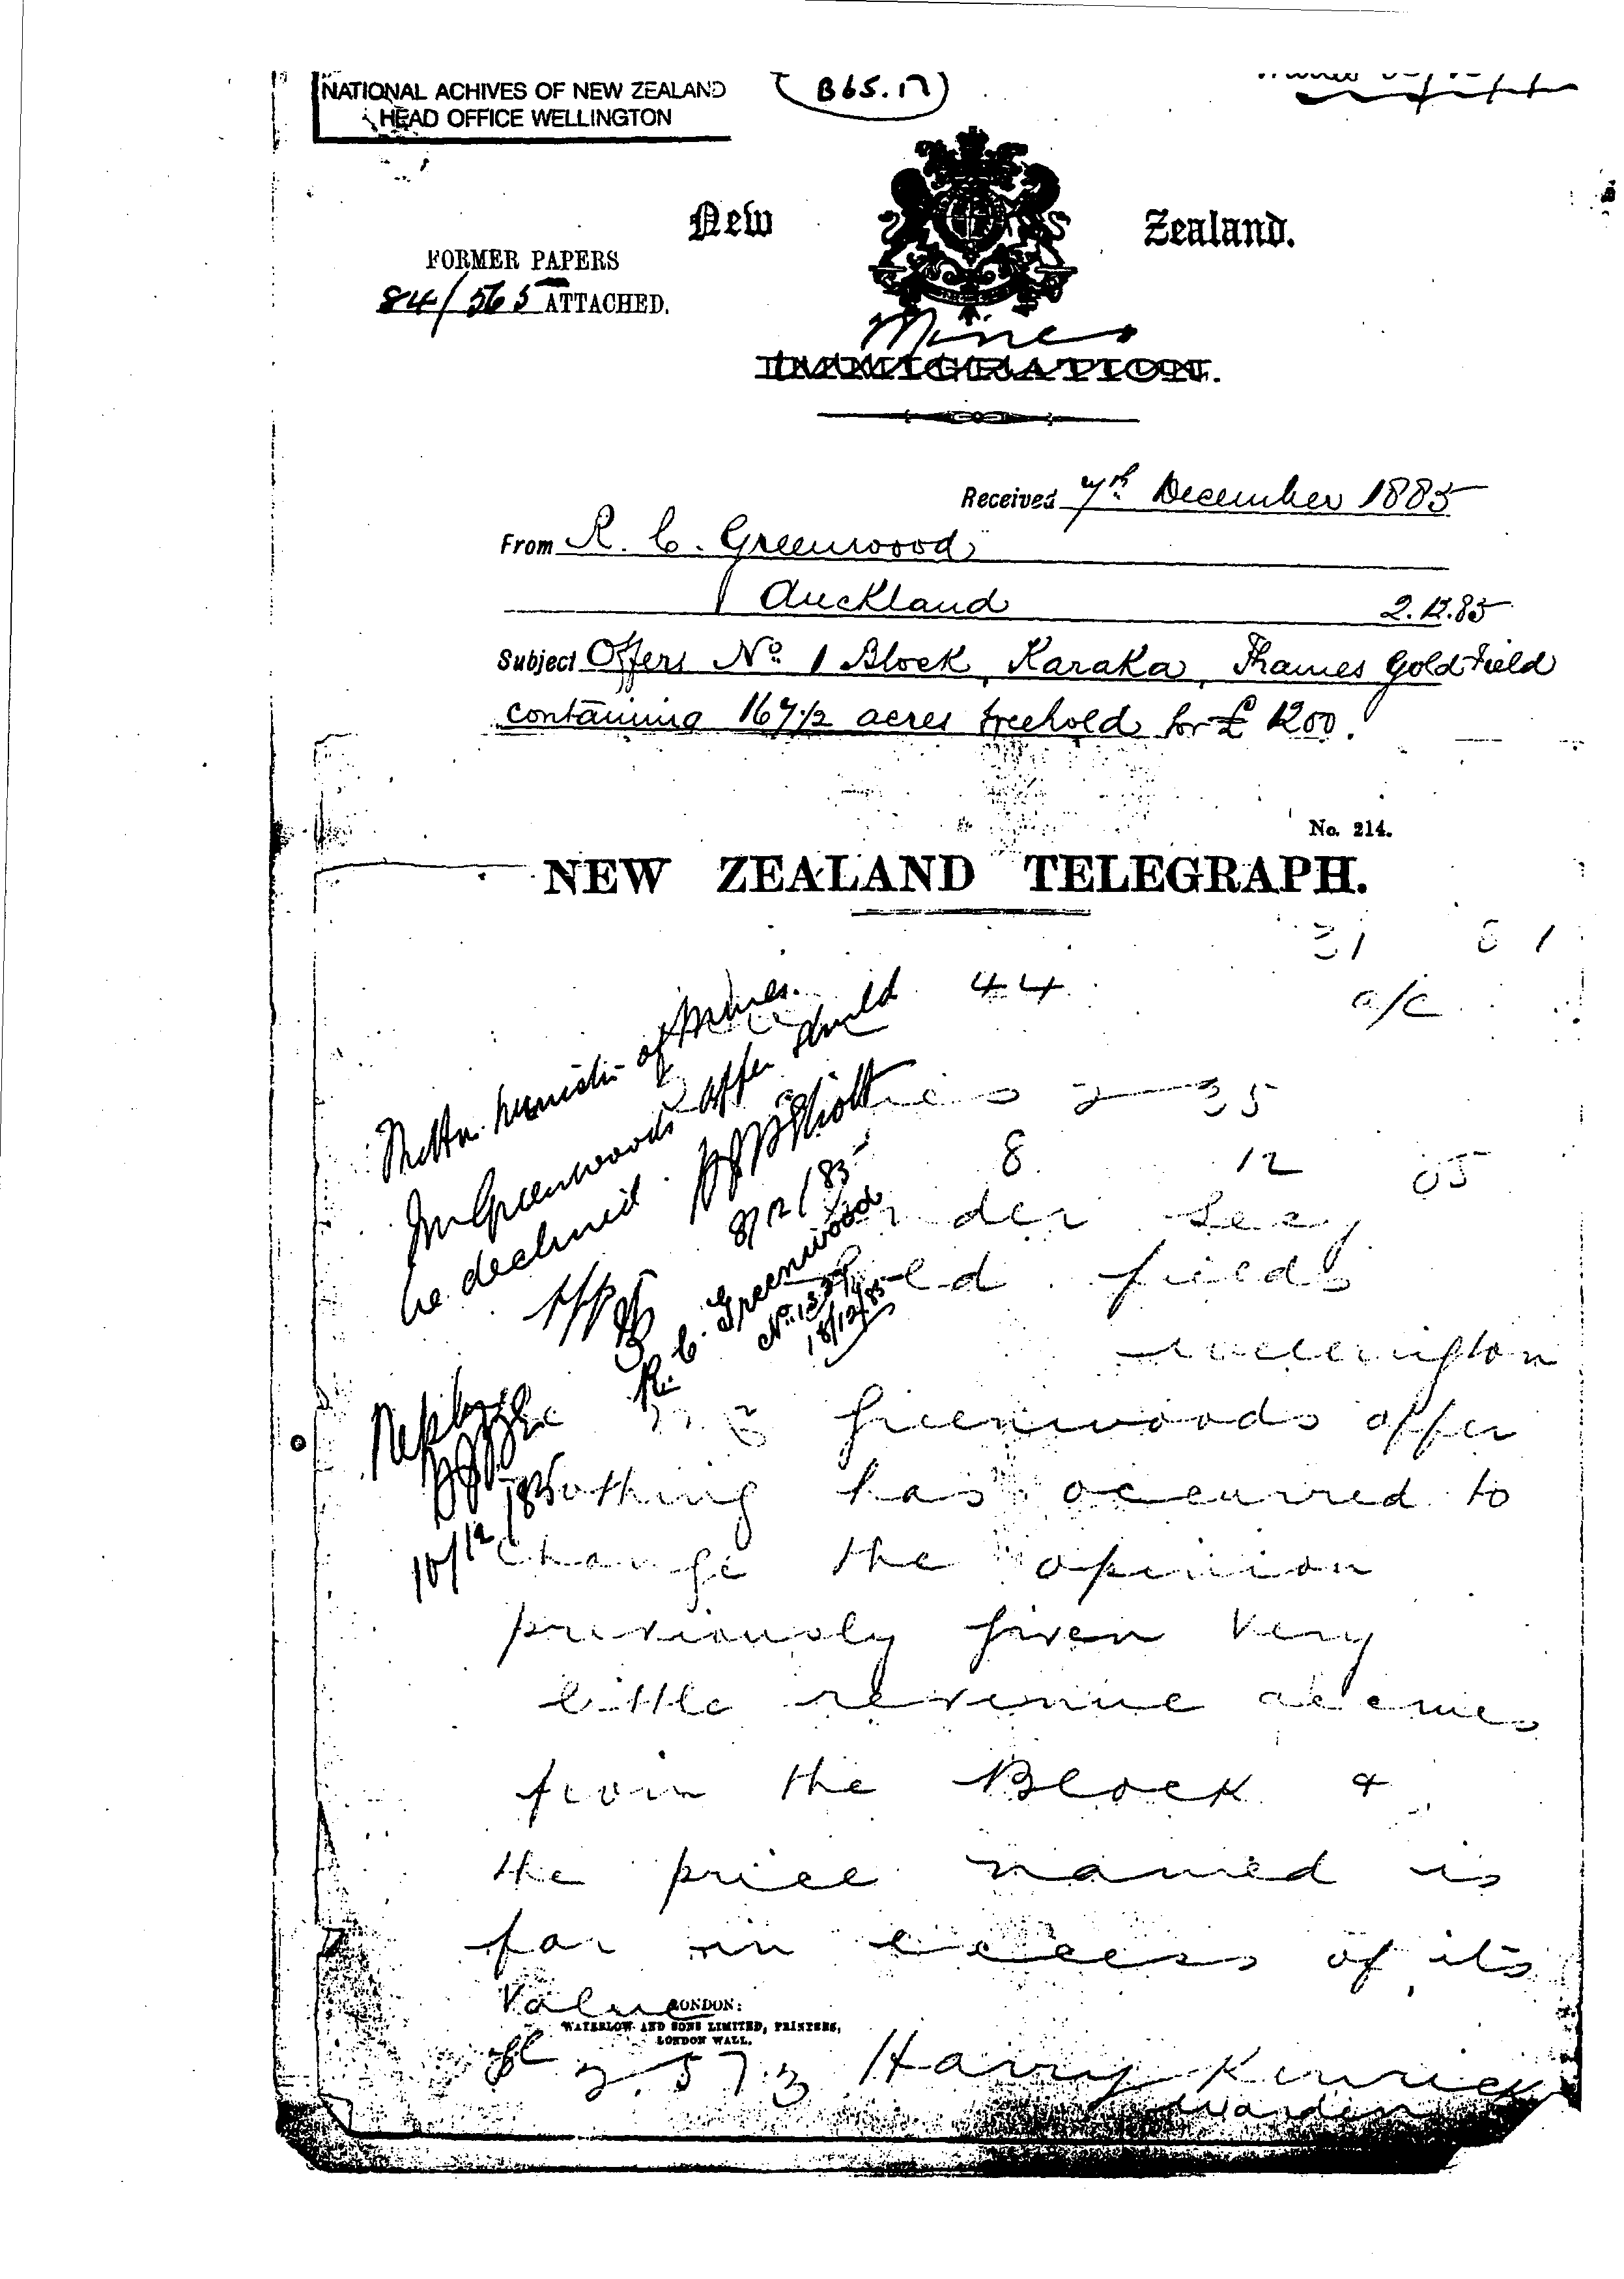 NATIONAL ACHIVES OF NEW ZEALAND
HEAD OFFICE WELLINGTON
B65.17
New Zealand.
FORMER PAPERS
84/565 ATTACHED.
Mines
IMMIGRATION.
Received 7th December 1885
From R. C. Greenwood
Auckland 2.12.85
Subject Offers No. 1 Block, Karaka, Thames Goldfield
containing 167 1/2 acres freehold for £ 1200.
No. 214.
NEW ZEALAND TELEGRAPH.
44
a/c
2 35
8 12 85
Under Secy
Gold fields
Wellington
The Hon. Minister of Mines.
Mr Greenwoods offer should
be declined.
8/12/85
R. C. Greenwood
18/12/85
10/12/85
Greenwoods offer
Nothing has occurred to
change the opinion
previously given Very
little revenue accrues
from the Block &
the price named is
far in excess of its
Value
LONDON:
WATERLOW AND SONS LIMITED, PRINTERS,
LONDON WALL.
Harry Kenrick
Warden